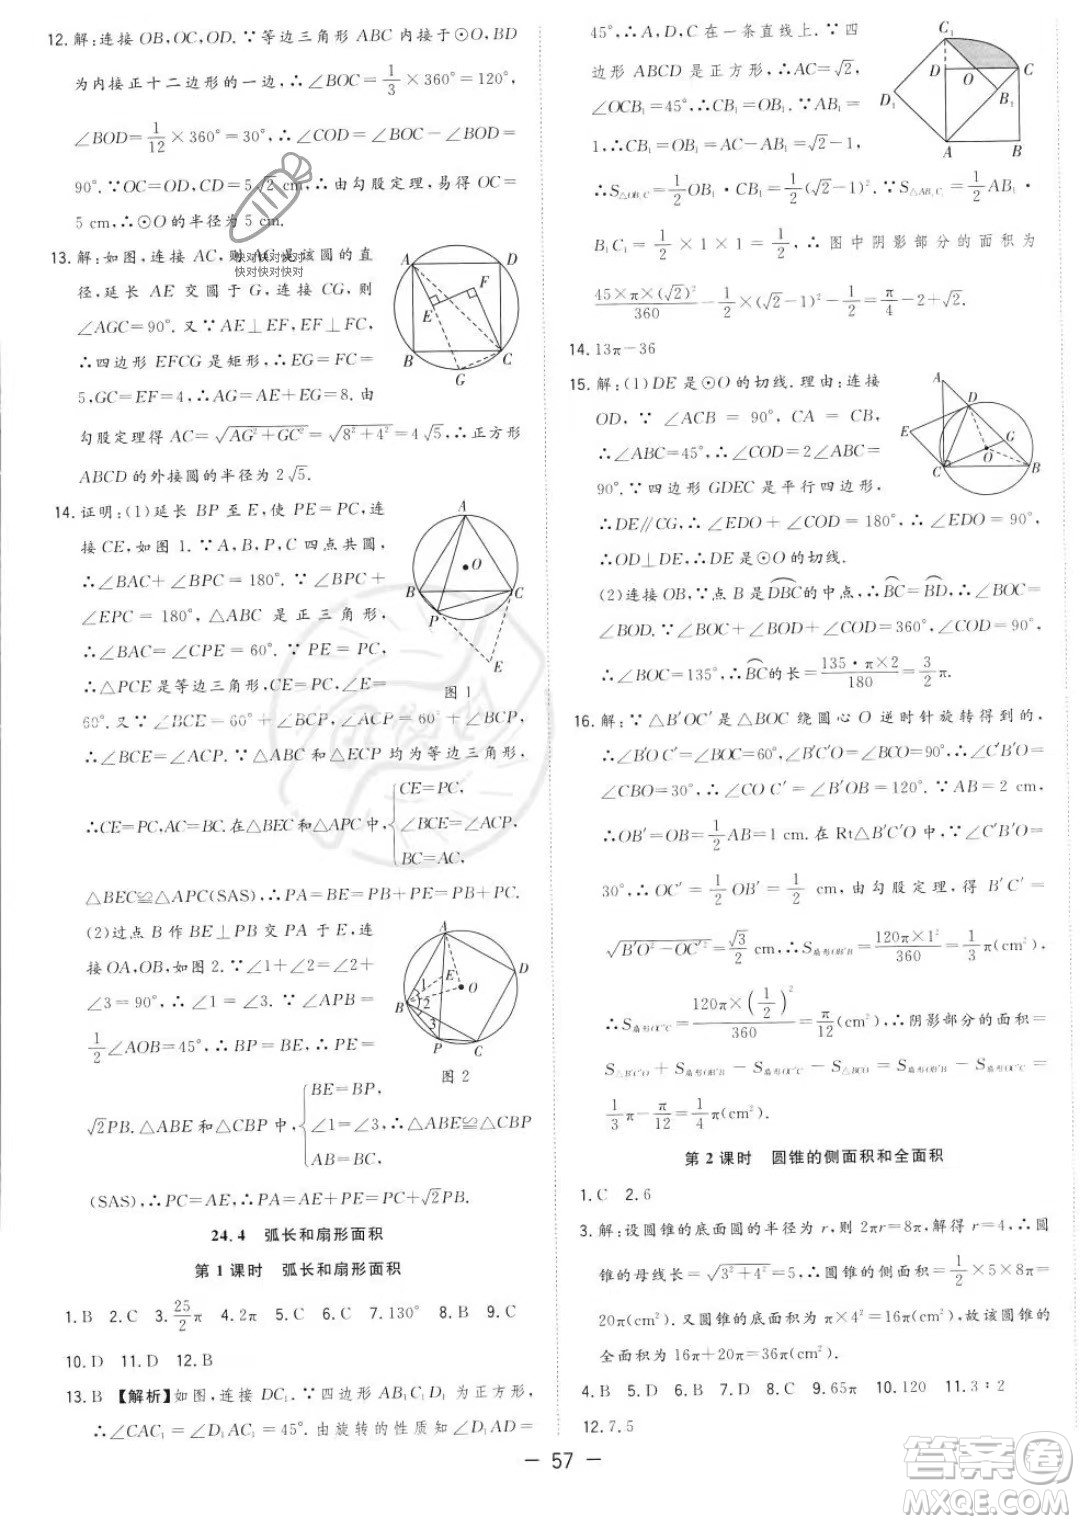 12. 解:连接 OB,OC,OD.∵等边三角形 ABC 内接于⊙O,BD
为内接正十二边形的一边,∴∠BOC=1/3×360°=120°,
∠BOD=1/12×360°=30°,∴∠COD=∠BOC-∠BOD=
90°.∵OC=OD,CD=5√2 cm,∴由勾股定理,易得 OC=
5 cm,∴⊙O的半径为 5 cm.
快对快对快对
快对快对快对
13. 解:如图,连接 AC,则 AC 是该圆的直
径,延长 AE 交圆于 G,连接 CG,则
∠AGC=90°.又∵AE⊥EF,EF⊥FC,
∴四边形 EFCG 是矩形,∴EG=FC=
5,GC=EF=4,∴AG=AE+EG=8.由
勾股定理得 AC=√(AG²+GC²)=√(8²+4²)=4√5,∴正方形
ABCD 的外接圆的半径为 2√5.
A D F E B C G
14. 证明:(1)延长 BP 至 E,使 PE=PC,连
接 CE,如图 1.∵A,B,P,C 四点共圆,
∴∠BAC+∠BPC=180°.∵∠BPC+
∠EPC=180°,△ABC 是正三角形,
∴∠BAC=∠EPC=60°.∵PE=PC,
∴△PCE是等边三角形,CE=PC,∠E=
60°.又∵∠BCE=60°+∠BCP,∠ACP=60°+∠BCP,
∴∠BCE=∠ACP.∵△ABC 和△ECP 均为等边三角形,
∴CE=PC,AC=BC.在△BEC 和△APC 中,{CE=PC, ∠BCE=∠ACP, BC=AC,
△BEC≌△APC(SAS),∴PA=BE=PB+PE=PB+PC.
A O B C P E
图 1
(2)过点 B 作 BE⊥PB 交 PA 于 E,连
接OA,OB,如图 2.∵∠1+∠2=∠2+
∠3=90°,∴∠1=∠3.∵∠APB=
1/2∠AOB=45°,∴BP=BE,∴PE=
√2PB.△ABE 和△CBP 中,{BE=BP, ∠1=∠3, AB=BC,∴△ABE≌△CBP
(SAS),∴PC=AE,∴PA=AE+PE=PC+√2PB.
A E D O B 1 2 3 P C
图 2
24.4 弧长和扇形面积
第 1 课时 弧长和扇形面积
1. B 2. C 3. 25/2π 4. 2π 5. C 6. C 7. 130° 8. B 9. C
10. D 11. D 12. B
13. B 【解析】如图,连接 DC₁.∵四边形 AB₁C₁D₁ 为正方形,
∴∠CAC₁=∠C₁AD₁=45°.由旋转的性质知∠D₁AD=
45°,∴A,D,C₁ 在一条直线上.∵四
边形 ABCD 是正方形,∴AC=√2,
∠OCB₁=45°,∴CB₁=OB₁.∵AB₁=
1,∴CB₁=OB₁=AC-AB₁=√2-1,
∴S△OB₁C=1/2OB₁·CB₁=1/2(√2-1)².∵S△AB₁C₁=1/2AB₁·
B₁C₁=1/2×1×1=1/2,∴图中阴影部分的面积为
45×π×(√2)²/360-1/2-1/2(√2-1)²=π/4-2+√2.
C₁ D O C D₁ B₁ A B
14. 13π-36
15. 解:(1)DE 是⊙O 的切线.理由:连接
OD,∵∠ACB=90°,CA=CB,
∴∠ABC=45°,∴∠COD=2∠ABC=
90°.∵四边形 GDEC 是平行四边形,
∴DE∥CG,∴∠EDO+∠COD=180°,∴∠EDO=90°,
∴OD⊥DE,∴DE是⊙O的切线.
A D E G O C B
(2)连接 OB,∵点 B 是DBC的中点,∴BC=BD,∴∠BOC=
∠BOD.∵∠BOC+∠BOD+∠COD=360°,∠COD=90°,
∴∠BOC=135°,∴BC的长=135·π×2/180=3/2π.
16. 解:∵△B′OC′是△BOC 绕圆心 O 逆时针旋转得到的,
∴∠B′OC′=∠BOC=60°,∠B′C′O=∠BCO=90°,∴∠C′B′O=
∠CBO=30°,∴∠COC′=∠B′OB=120°.∵AB=2 cm,
∴OB′=OB=1/2AB=1 cm.在 Rt△B′C′O 中,∵∠C′B′O=
30°,∴OC′=1/2OB′=1/2 cm,由勾股定理,得 B′C′=
√(B′O²-OC′²)=√3/2 cm,∴S扇形OB′B=120π×1²/360=1/3π(cm²),
∴S扇形OC′C=120π×(1/2)²/360=π/12(cm²),∴阴影部分的面积=
S△B′C′O+S扇形OB′B-S扇形OC′C-S△BCO=S扇形OB′B-S扇形OC′C=
1/3π-π/12=1/4π(cm²).
第 2 课时 圆锥的侧面积和全面积
1. C 2. 6
3. 解:设圆锥的底面圆的半径为 r,则 2πr=8π,解得 r=4,∴圆
锥的母线长=√(3²+4²)=5,∴圆锥的侧面积=1/2×5×8π=
20π(cm²).又圆锥的底面积为 π×4²=16π(cm²),故该圆锥的
全面积为 16π+20π=36π(cm²).
4. B 5. D 6. B 7. D 8. C 9. 65π 10. 120 11. 3∶2
12. 7.5
— 57 —
答案圈
MXQE.COM